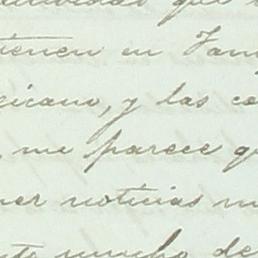 que
tienen en Tam
gicano, y las co
, me parece q
ner noticias m
mucho de